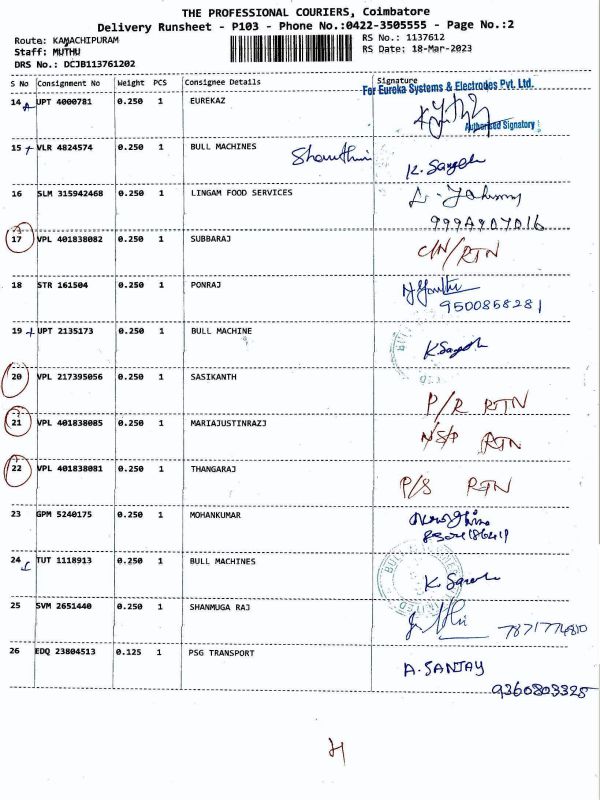 THE PROFESSIONAL COURIERS, Coimbatore
Delivery Runsheet - P103 - Phone No.:0422-3505555 - Page No.:2
Route: KAMACHIPURAM
RS No.: 1137612
Staff: MUTHU
RS Date: 18-Mar-2023
DRS No.: DCJB113761202
S No Consignment No Weight PCS Consignee Details Signature
For Eureka Systems & Electrodes Pvt. Ltd.
14 UPT 4000781 0.250 1 EUREKAZ
Authorised Signatory
15 VLR 4824574 0.250 1 BULL MACHINES
16 SLM 315942468 0.250 1 LINGAM FOOD SERVICES
17 VPL 401838082 0.250 1 SUBBARAJ C/N/RTN
18 STR 161504 0.250 1 PONRAJ
9500858281
19 UPT 2135173 0.250 1 BULL MACHINE
20 VPL 217395056 0.250 1 SASIKANTH
P/R RTN
21 VPL 401838085 0.250 1 MARIAJUSTINRAZJ
N/S/P RTN
22 VPL 401838081 0.250 1 THANGARAJ
P/S RTN
23 GPM 5240175 0.250 1 MOHANKUMAR
24 TUT 1118913 0.250 1 BULL MACHINES
25 SVM 2651440 0.250 1 SHANMUGA RAJ
26 EDQ 23804513 0.125 1 PSG TRANSPORT
A. SANJAY
9360803325